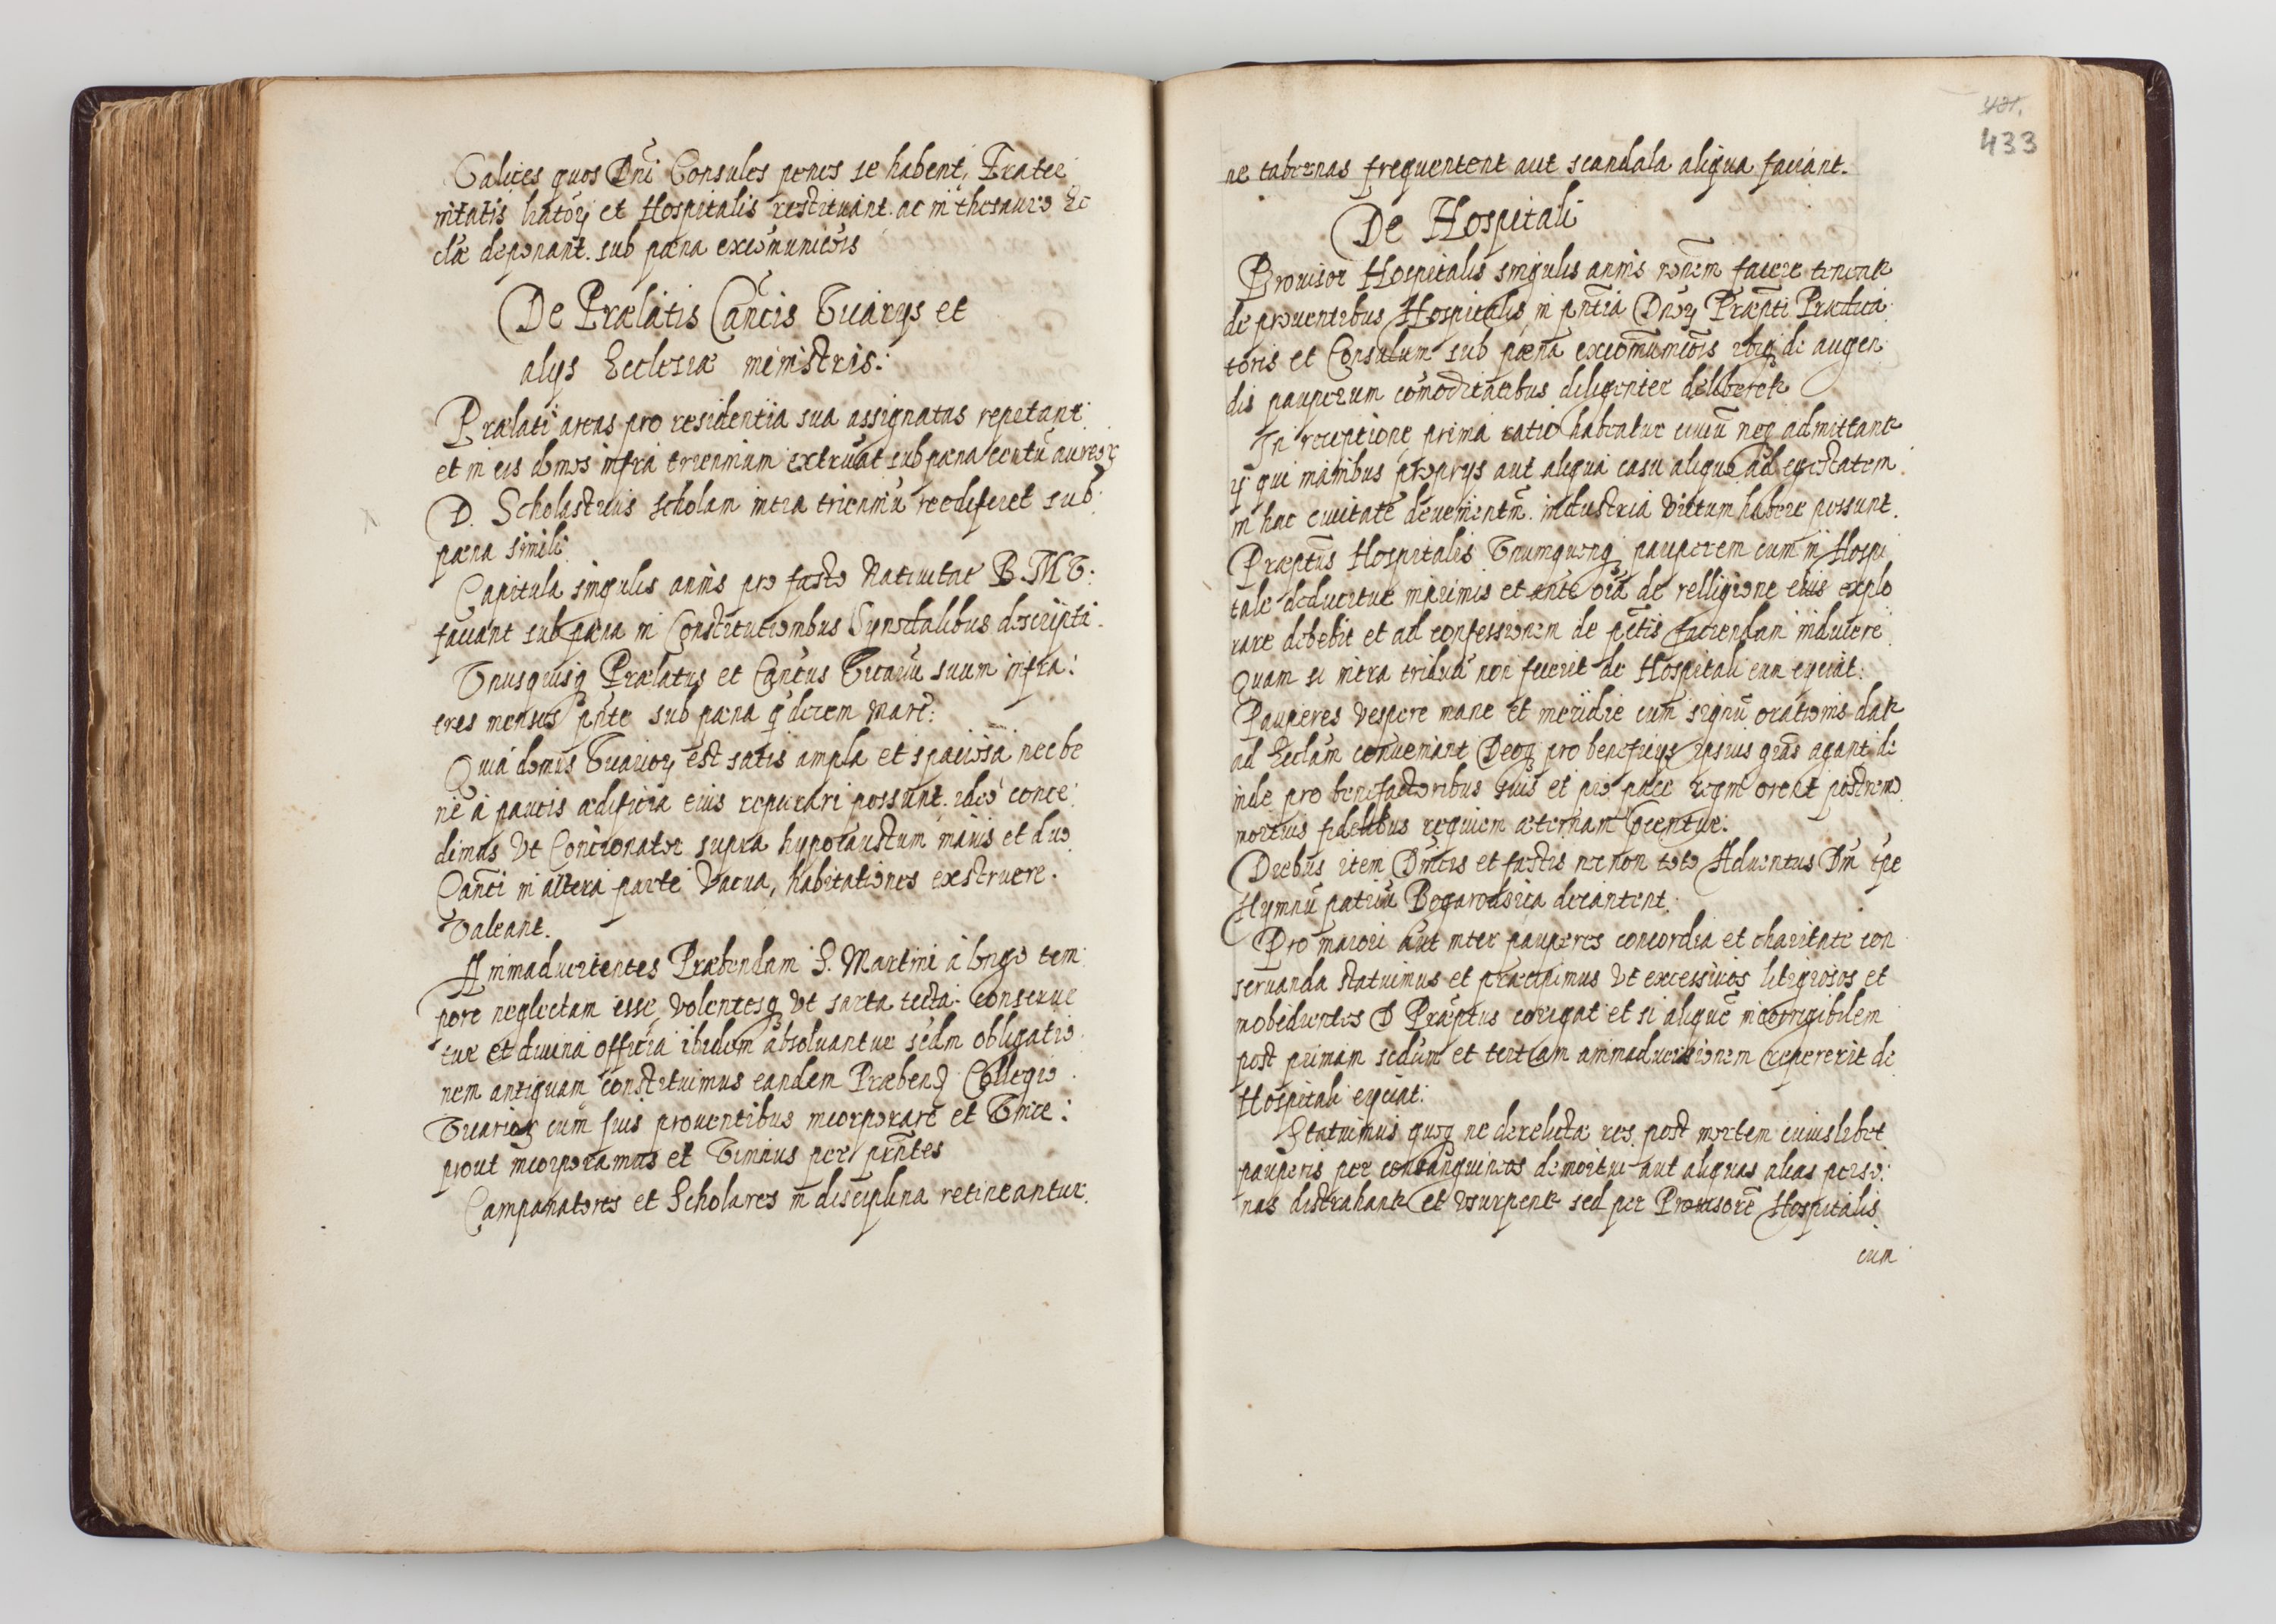 Calices quos Dñi Consules penes se habent, Frater
nitatis liatorꝫ et Hospitalis restituant. ac in thesauro Ec
clæ deponant. sub pœna excõmunicõis
De Prælatis Cañcis Vicarijs et
alijs Ecclesiæ ministris:
Prælati areas pro residentia sua assignatas repetant
et in eis domos infra triennium extruãt sub pœna centũ aureorꝫ
D. Scholasticus scholam intra trienniũ reedificet sub
pœna simili
Capitula singulis annis pro festo Nativitat B. M. V:
faciant sub pœna in Constitutionibus Synodalibus descripta.
Vnusquisqꝫ Prælatus et Cañcus Vicariũ suum infra:
tres menses pñte sub pœna decem marc:
Quia domus Vicariorꝫ est satis ampla et spaciosa nec be
ne à paucis ædificia eius reparari possunt. ideo conce
dimus Vt Concionator supra hypocaustum maius et duo
Cañci in altera parte vacua, habitationes exstruere.
Valeant.
Animaduertentes Præbendam S. Martini à longo tem
pore neglectam esse, volentesqꝫ vt sarta tecta conserue
tur et diuina officia ibidem absoluantur sẽdm obligatio
nem antiquam constituimus eandem Præbendã Collegio
Vicariorꝫ cum suis prouentibus incorporare et Vnire:
prout incorporamus et Vnimus per pñtes
Campanatores et Scholares in disciplina retineantur.
431.
433
ne tabernas frequentent aut scandala aliqua faciant.
De Hospitali
Prouisor Hospitalis singulis annis rõnem facere tenentr
de prouentibus Hospitalis in pñtia Dnorꝫ Præpti Prædica
toris et Consulum sub pœna excõmunicõis ibiqꝫ de augen
dis pauperum comoditatibus diligenter deliberetr
In receptione prima ratio habeatur ciuiũ neqꝫ admittantr
ij qui manibus proprijs aut aliqua casu aliquo ad egestatem
in hac ciuitate deuenientiũ. industria victum habere possunt.
Præptus Hospitalis Vnumquemqꝫ pauperem cum in Hospi
tale deducitur inprimis et ante oĩa de relligione eius explo
rare debebit et ad confessionem de pctis faciendam inducere
Quam si intra triduũ non fecerit de Hospitali eum eijciat:
Pauperes vespere mane et meridie cum signũ orationis datr
ad Ecclam conueniant Deoqꝫ pro beneficijs ipsius grãs agant de
inde pro benefactoribus suis et pro pace regni orent postremo
mortuis fidelibus requiem æternam precentur:
Diebus item Dñicis et festis nec non toto Aduentus Dñi tpe
Hymnũ patriũ Bogarodzica decantent.
Pro maiori aut inter pauperes concordia et charitate con
seruanda statuimus et præcipimus vt excessiuos litigiosos et
inobedientes D Præptus corrigat et si aliquẽ incorrigibilem
post primam sẽdam et tertiam animaduersionem repererit de
Hospitali eijciat:
Statuimus quoqꝫ ne derelicta res post mortem cuiuslibet
pauperis per consanguineos demortui aut aliquas alias perso:
nas distrahantr et vsurpentr sed per Prouisorẽ Hospitalis
cum